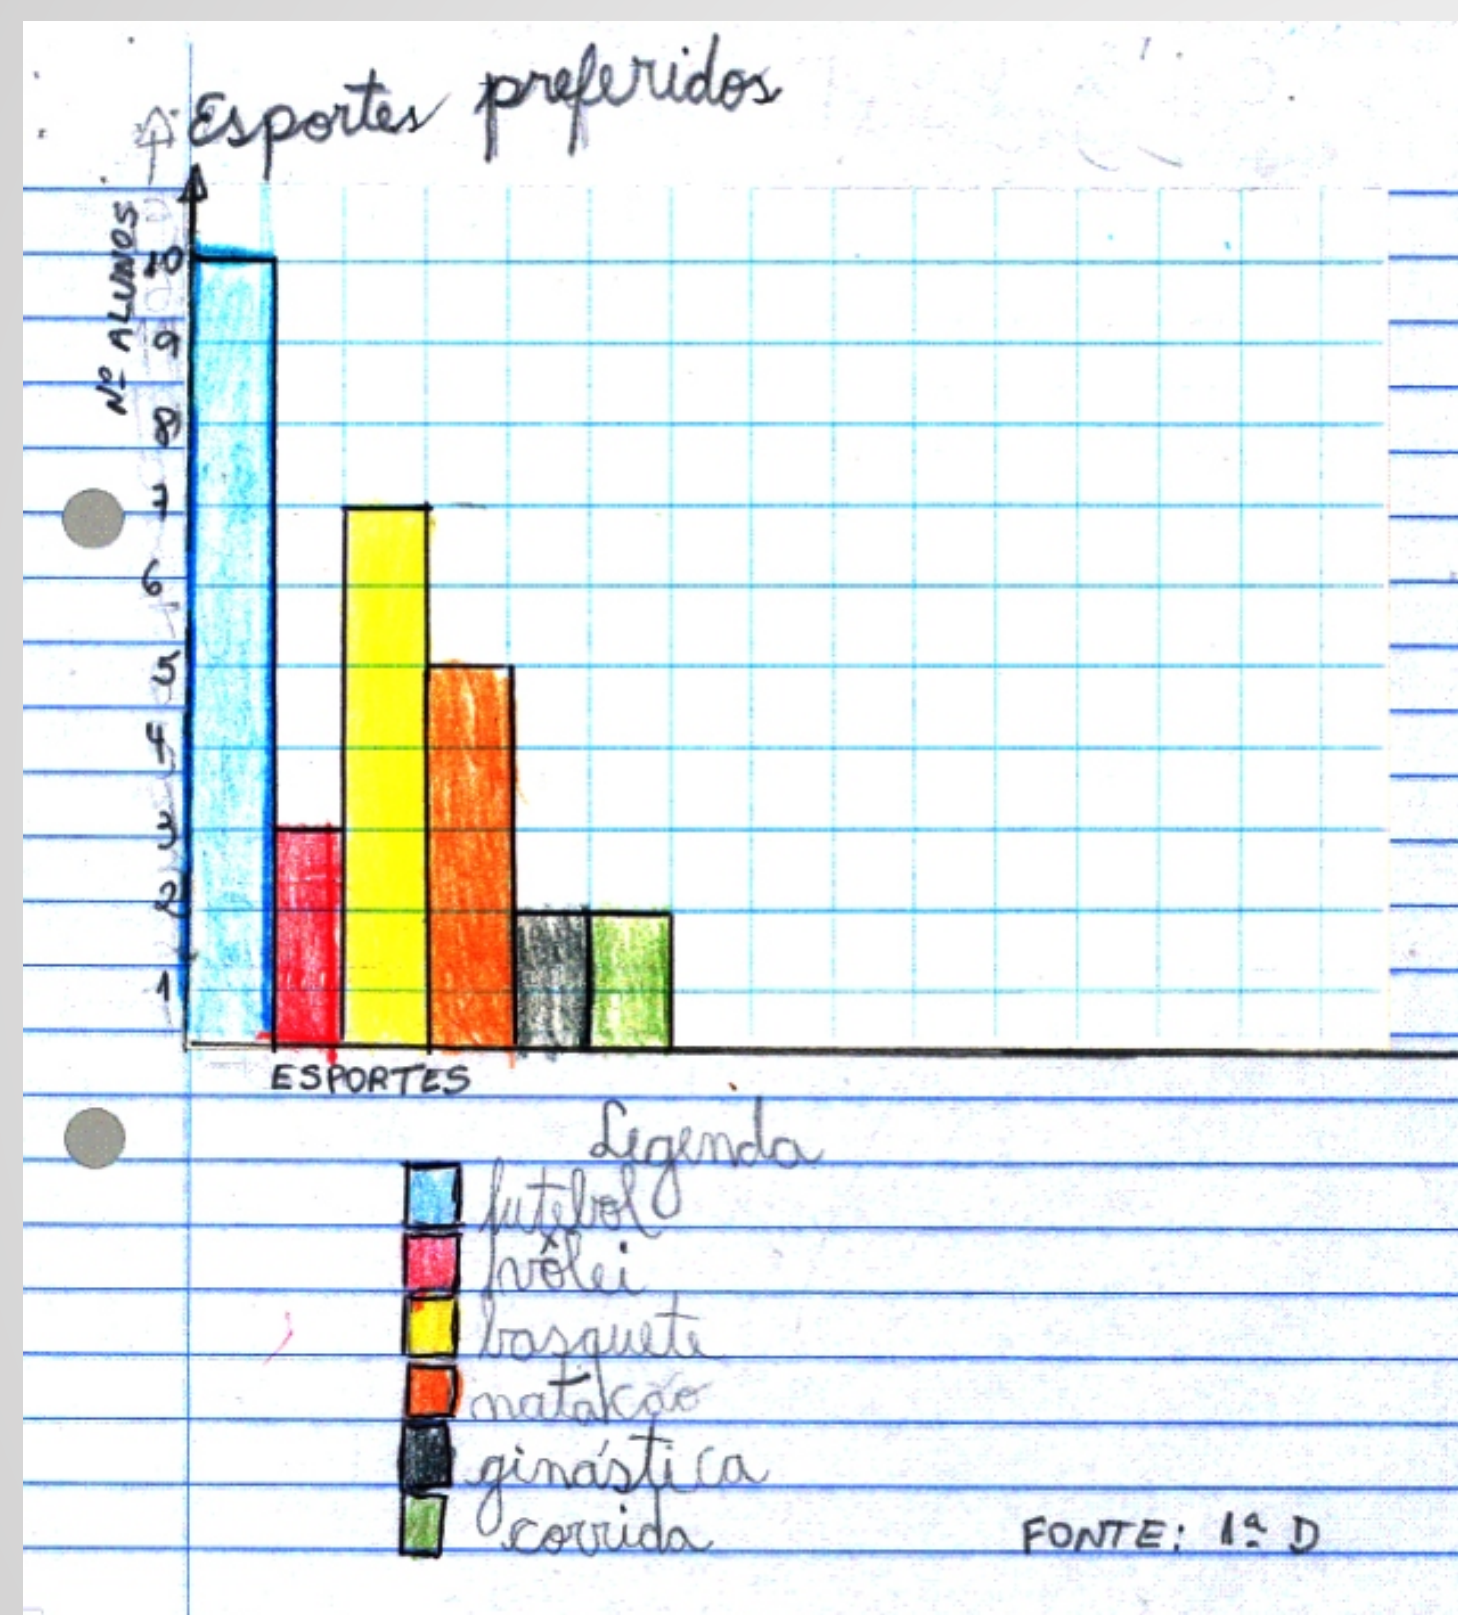 Esportes preferidos
Nº ALUNOS
10
9
8
7
6
5
4
3
2
1
ESPORTES
Legenda
futebol
vôlei
basquete
natação
ginástica
corrida
FONTE: 1ª D